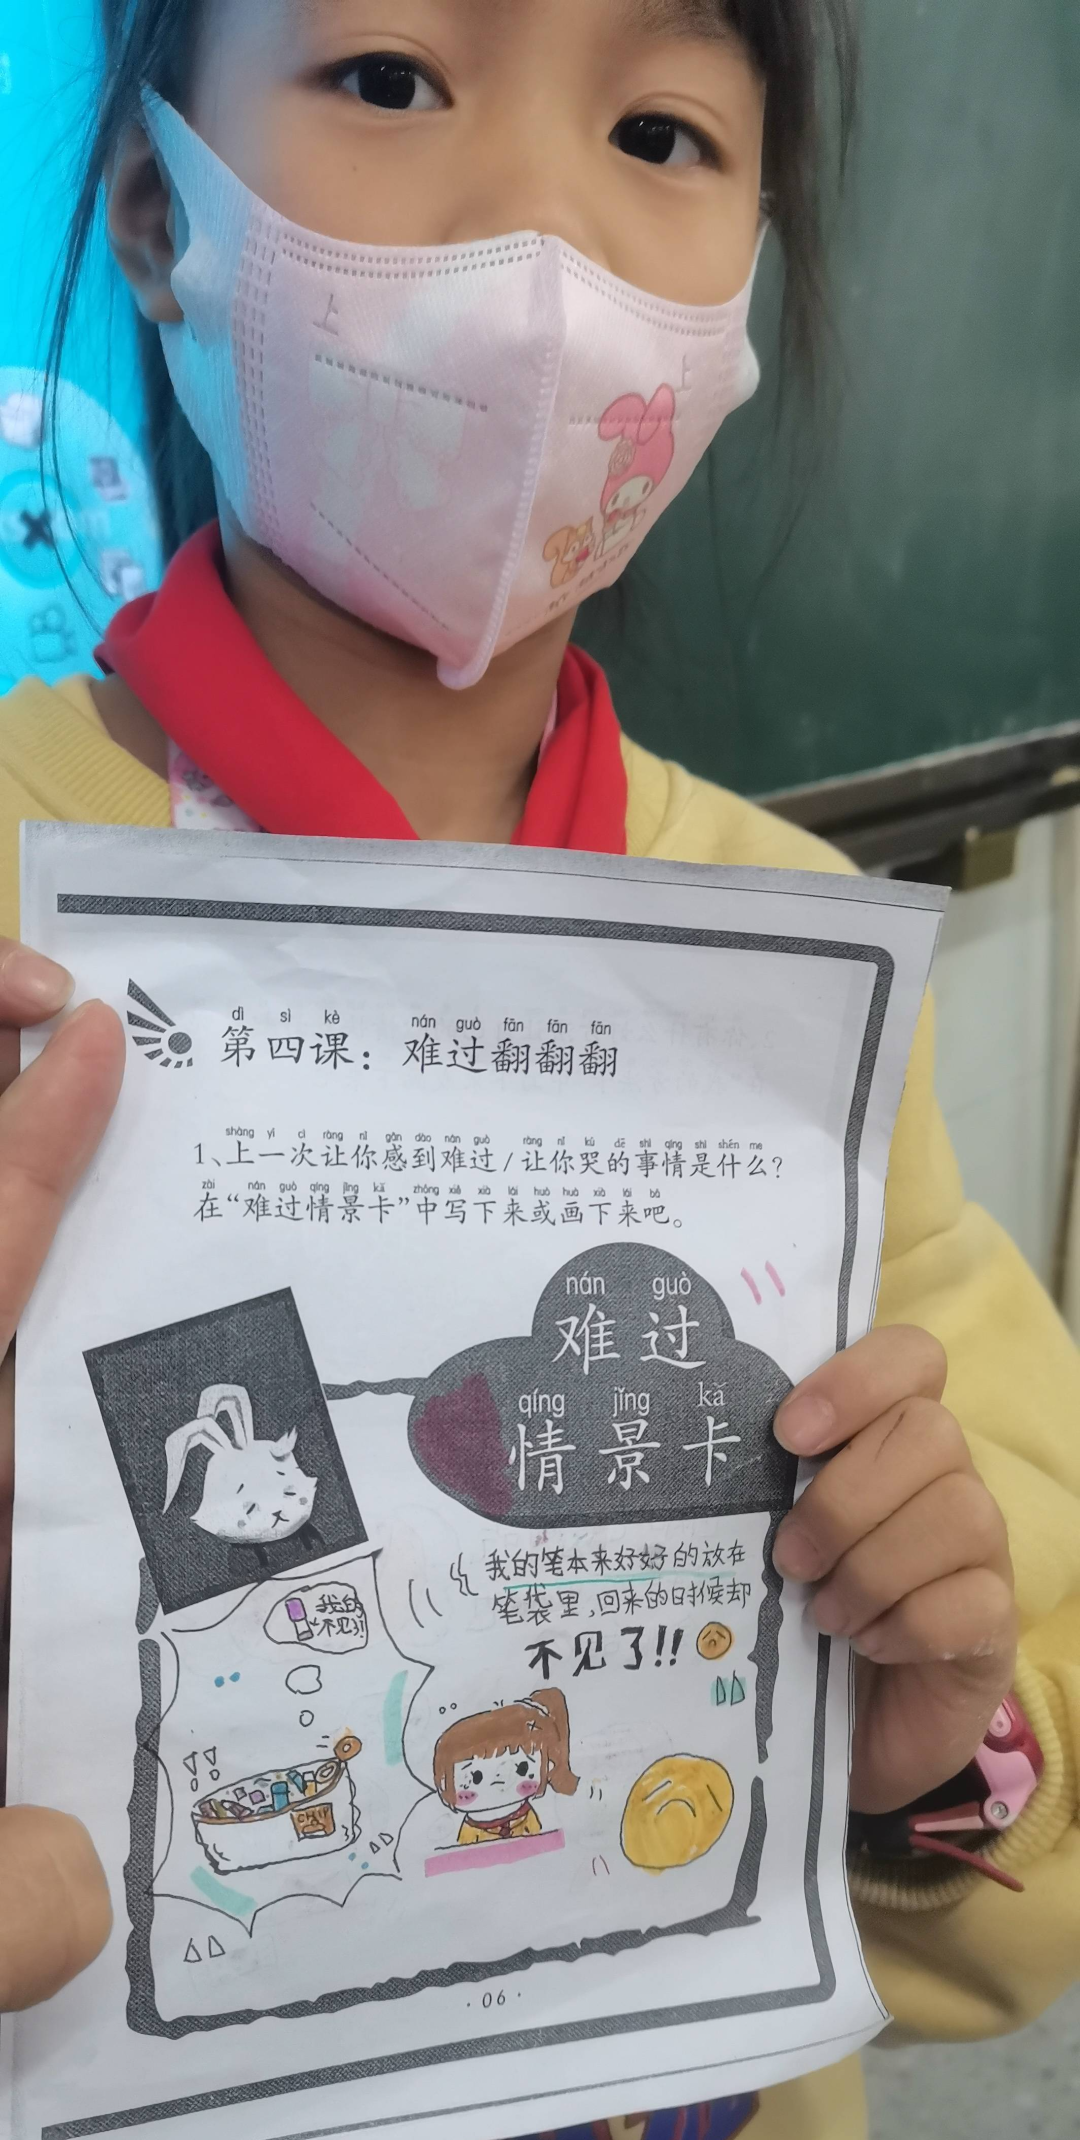 上
上
dì sì kè nán guò fān fān fān
第四课：难过翻翻翻
shàng yí cì ràng nǐ gǎn dào nán guò ràng nǐ kū dē shì qíng shì shén me
1、上一次让你感到难过/让你哭的事情是什么？
zài nán guò qíng jǐng kǎ zhōng xiě xià lái huò huà xià lái bā
在“难过情景卡”中写下来或画下来吧。
nán guò
难过
qíng jǐng kǎ
情景卡
我的笔本来好好的放在
笔袋里，回来的时候却
不见了!!
我的
不见!
CHIP
·06·